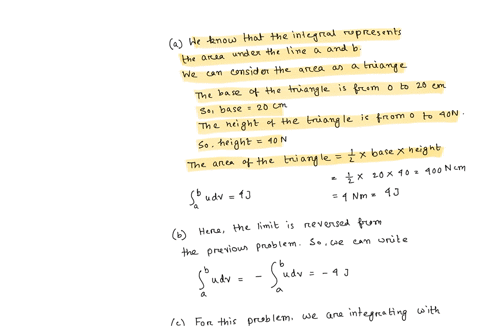 (a) We know that the integral represents
the area under the line a and b.
We can consider the area as a triange
The base of the triangle is from 0 to 20 cm
So, base = 20 cm
The height of the triangle is from 0 to 40N.
So, height = 40N
The area of the triangle = 1/2 × base × height
= 1/2 × 20 × 40 = 400 Ncm
∫_a^b udv = 4J
= 4 Nm = 4J
(b) Here, the limit is reversed from
the previous problem. So, we can write
∫_a^b udv = - ∫_a^b udv = -4 J
(c) For this problem, we are integrating with